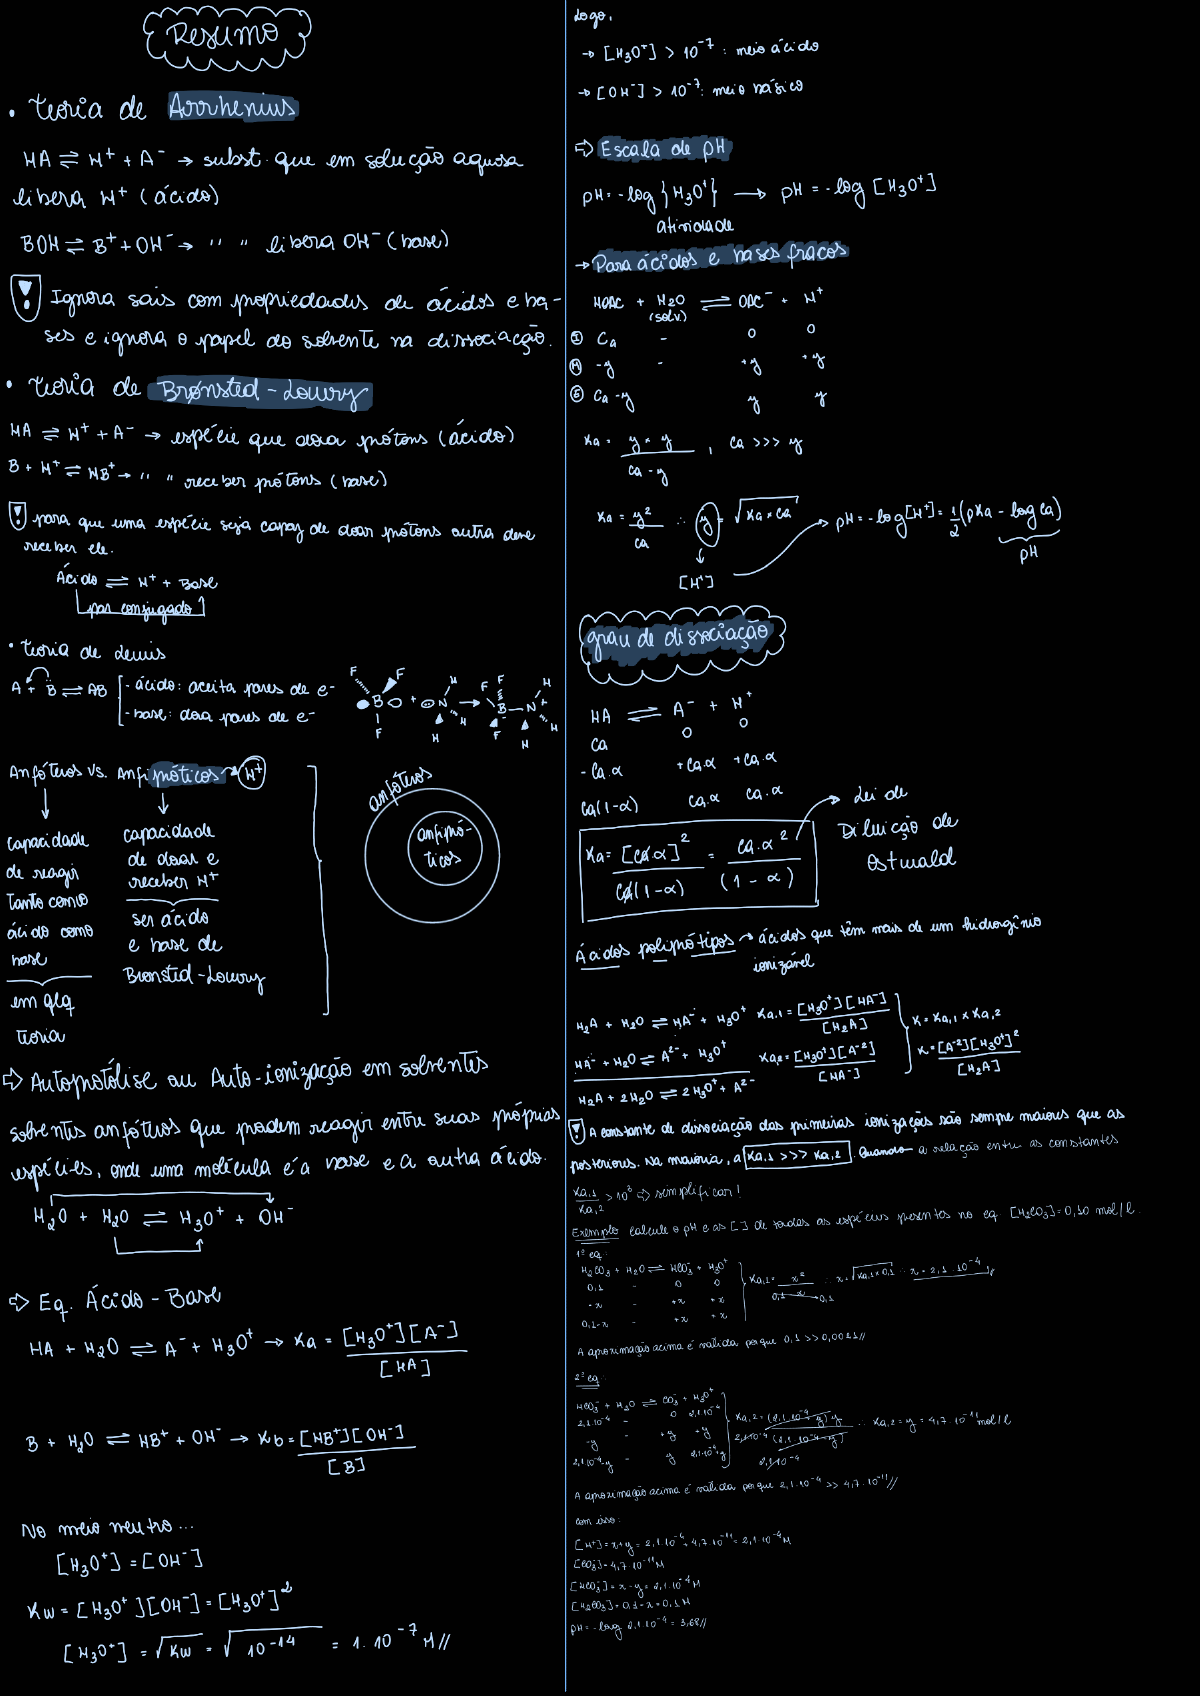 Resumo
• Teoria de Arrhenius
HA ⇌ H⁺ + A⁻ → subst. que em solução aquosa
libera H⁺ (ácido)
BOH ⇌ B⁺ + OH⁻ → " " libera OH⁻ (base)
! Ignora sais com propriedades de ácidos e ba-
ses e ignora o papel do solvente na dissociação.
• Teoria de Brønsted-Lowry
HA ⇌ H⁺ + A⁻ → espécie que doa prótons (ácido)
B + H⁺ ⇌ HB⁺ → " " receber prótons (base)
! para que uma espécie seja capaz de doar prótons outra deve
receber ele.
Ácido ⇌ H⁺ + Base
par conjugado
• Teoria de Lewis
A + B̈ ⇌ AB
- ácido: aceita pares de e-
- base: doa pares de e-
F F B F + N H H H → F F B F N⁺ H H H
Anfóteros vs. Anfipróticos → H⁺
capacidade
de reagir
tanto como
ácido como
base
em qlq
teoria
capacidade
de doar e
receber H⁺
ser ácido
e base de
Brønsted-Lowry
anfóteros
anfipró-
ticos
⇨ Autoprotólise ou Auto-ionização em solventes
solventes anfóteros que podem reagir entre suas próprias
espécies, onde uma molécula é a base e a outra ácido.
H₂O + H₂O ⇌ H₃O⁺ + OH⁻
⇨ Eq. Ácido-Base
HA + H₂O ⇌ A⁻ + H₃O⁺ → Ka = [H₃O⁺][A⁻] / [HA]
B + H₂O ⇌ HB⁺ + OH⁻ → Kb = [HB⁺][OH⁻] / [B]
No meio neutro...
[H₃O⁺] = [OH⁻]
Kw = [H₃O⁺][OH⁻] = [H₃O⁺]²
[H₃O⁺] = √Kw = √10⁻¹⁴ = 1. 10⁻⁷ M//
Logo,
→ [H₃O⁺] > 10⁻⁷ : meio ácido
→ [OH⁻] > 10⁻⁷: meio básico
⇨ Escala de pH
pH = -log {H₃O⁺} → pH = -log [H₃O⁺]
atividade
→ Para ácidos e bases fracos
HOAC + H₂O ⇌ OAC⁻ + H⁺
(solv.)
I Ca - 0 0
M -y - +y +y
E Ca-y y y
Ka = y × y / Ca - y , Ca >>> y
Ka = y² / Ca ∴ y = √Ka × Ca
[H⁺]
pH = -log[H⁺] = 1/2 (pKa - log Ca)
pH
grau de dissociação
HA ⇌ A⁻ + H⁺
Ca 0 0
- Ca.α +Ca.α +Ca.α
Ca(1-α) Ca.α Ca.α
Ka = [Ca.α]² / Ca(1-α) = Ca.α² / (1 - α)
Lei de
Diluição de
Ostwald
Ácidos polipróticos → ácidos que têm mais de um hidrogênio
ionizável
H₂A + H₂O ⇌ HA⁻ + H₃O⁺ Ka,1 = [H₃O⁺][HA⁻] / [H₂A]
HA⁻ + H₂O ⇌ A²⁻ + H₃O⁺ Ka,2 = [H₃O⁺][A⁻²] / [HA⁻]
H₂A + 2H₂O ⇌ 2H₃O⁺ + A²⁻
K = Ka,1 × Ka,2
K = [A⁻²][H₃O⁺]² / [H₂A]
! A constante de dissociação das primeiras ionizações são sempre maiores que as
posteriores. Na maioria, a Ka,1 >>> Ka,2. Quando a relação entre as constantes
Ka,1 / Ka,2 > 10³ ⇨ simplificar!
Exemplo calcule o pH e as [ ] de todas as espécies presentes no eq. [H₂CO₃] = 0,10 mol/l.
1º eq:
H₂CO₃ + H₂O ⇌ HCO₃⁻ + H₃O⁺
0,1 - 0 0
-x - +x +x
0,1-x - +x +x
Ka,1 = x² / 0,1 - x → 0,1 ∴ x = √Ka,1 × 0,1 ∴ x = 2,1 . 10⁻⁴
A aproximação acima é válida porque 0,1 >> 0,0021//
2º eq:
HCO₃⁻ + H₂O ⇌ CO₃⁻ + H₃O⁺
2,1.10⁻⁴ - 0 2,1.10⁻⁴
-y - +y +y
2,1.10⁻⁴-y - y 2,1.10⁻⁴+y
Ka,2 = (2,1.10⁻⁴ + y) y / 2,1.10⁻⁴ (2,1.10⁻⁴ - y) 2,1.10⁻⁴ ∴ Ka,2 = y = 4,7.10⁻¹¹ mol/l
A aproximação acima é válida porque 2,1.10⁻⁴ >> 4,7.10⁻¹¹//
com isso:
[H⁺] = x+y = 2,1.10⁻⁴ + 4,7.10⁻¹¹ = 2,1.10⁻⁴ M
[CO₃⁻] = 4,7.10⁻¹¹ M
[HCO₃⁻] = x - y = 2,1.10⁻⁴ M
[H₂CO₃] = 0,1 - x = 0,1 M
pH = -log 2,1.10⁻⁴ = 3,68//